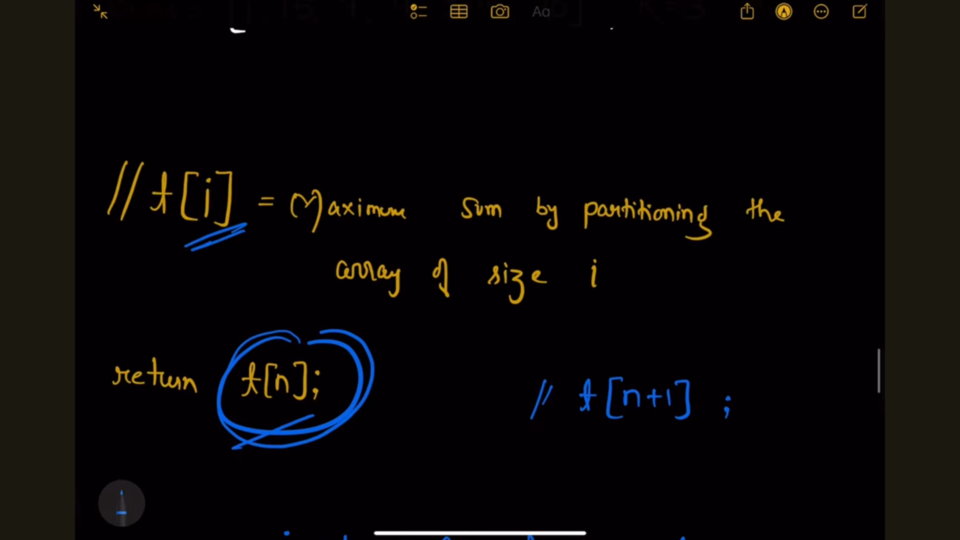 Aa
// t[i] = Maximum sum by partitioning the
array of size i
return t[n];
// t[n+1] ;